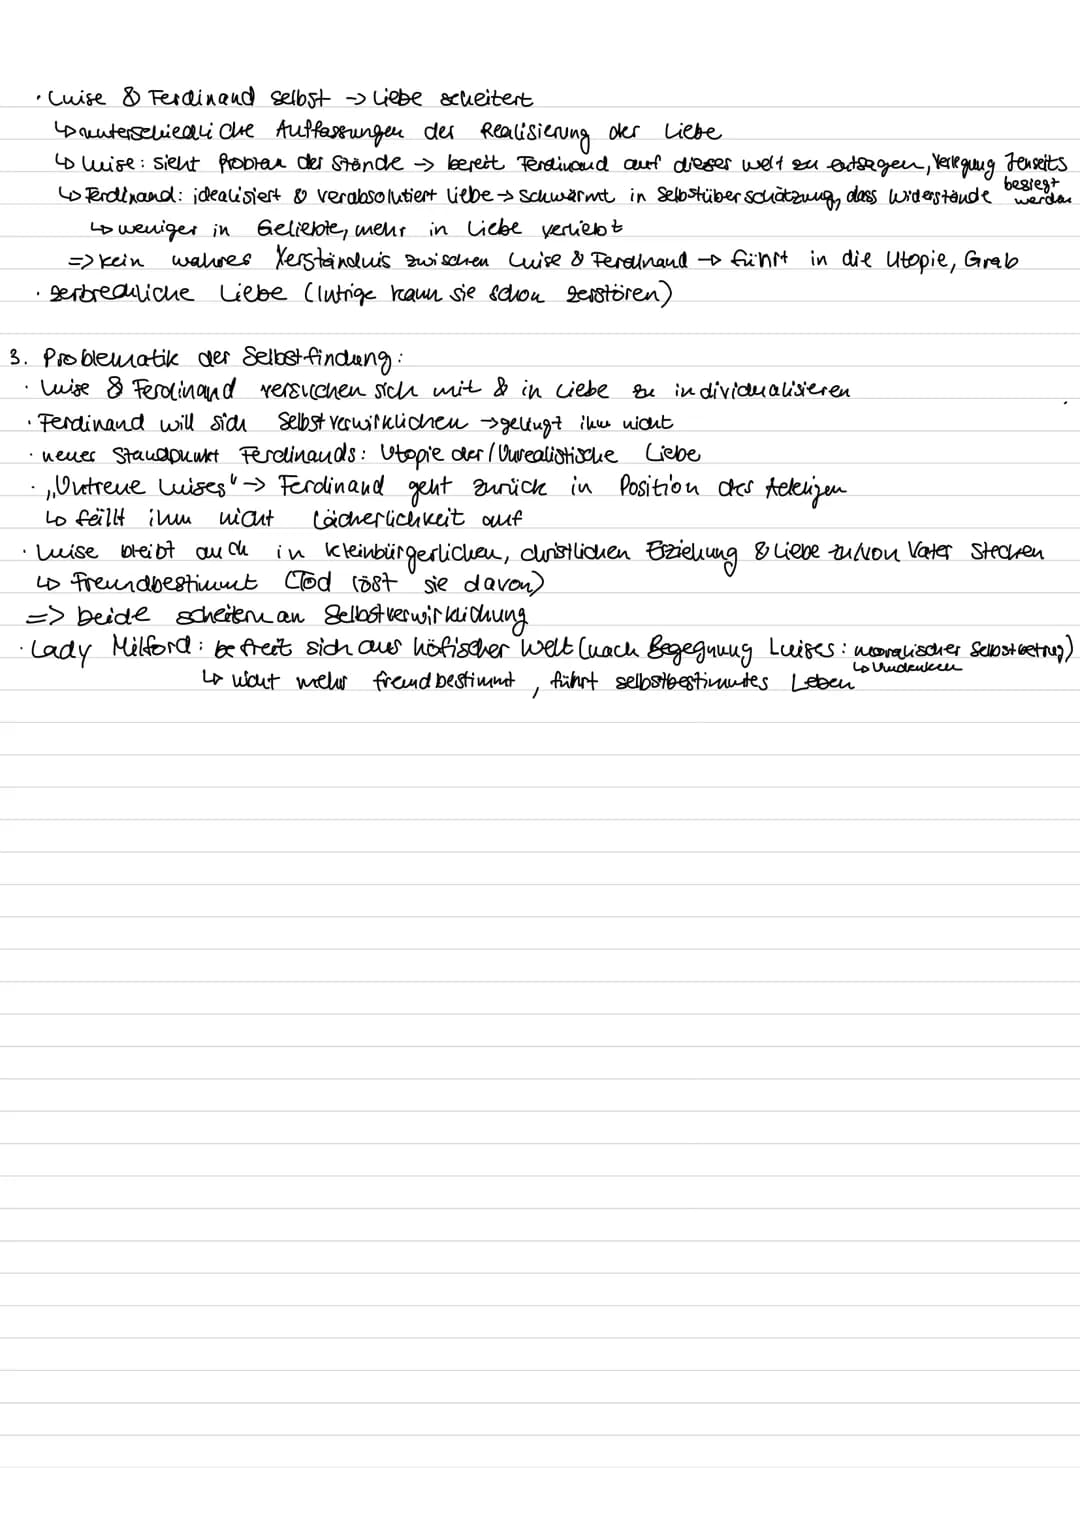 · Luise & Ferdinand selbst -> Liebe scheitert
↳ unterschiedliche Auffassungen der Realisierung der Liebe
↳ Luise: sieht Problem der Stände -> bereit Ferdinand auf dieser Welt zu entsagen, Verlegung Jenseits
↳ Ferdinand: idealisiert & verabsolutiert Liebe -> schwärmt in Selbstüberschätzung, dass Widerstände besiegt werden
↳ weniger in Geliebte, mehr in Liebe verliebt
=> kein wahres Verständnis zwischen Luise & Ferdinand -> führt in die Utopie, Grab
· zerbrechliche Liebe (Intrige kann sie schon zerstören)
3. Problematik der Selbstfindung:
· Luise & Ferdinand versuchen sich mit & in Liebe zu individualisieren
· Ferdinand will sich selbst verwirklichen -> gelingt ihm nicht
· neuer Standpunkt Ferdinands: Utopie der / Unrealistische Liebe
· „Untreue Luises" -> Ferdinand geht zurück in Position des Adeligen
↳ fällt ihm nicht Lächerlichkeit auf
· Luise bleibt auch in kleinbürgerlichen, christlichen Erziehung & Liebe zu/von Vater stecken
↳ Fremdbestimmt (Tod löst sie davon)
=> beide scheitern an Selbstverwirklichung
· Lady Milford: befreit sich aus höfischer Welt (nach Begegnung Luises: moralischer Selbstbetrug)
↳ Umdenken
↳ nicht mehr fremdbestimmt, führt selbstbestimmtes Leben